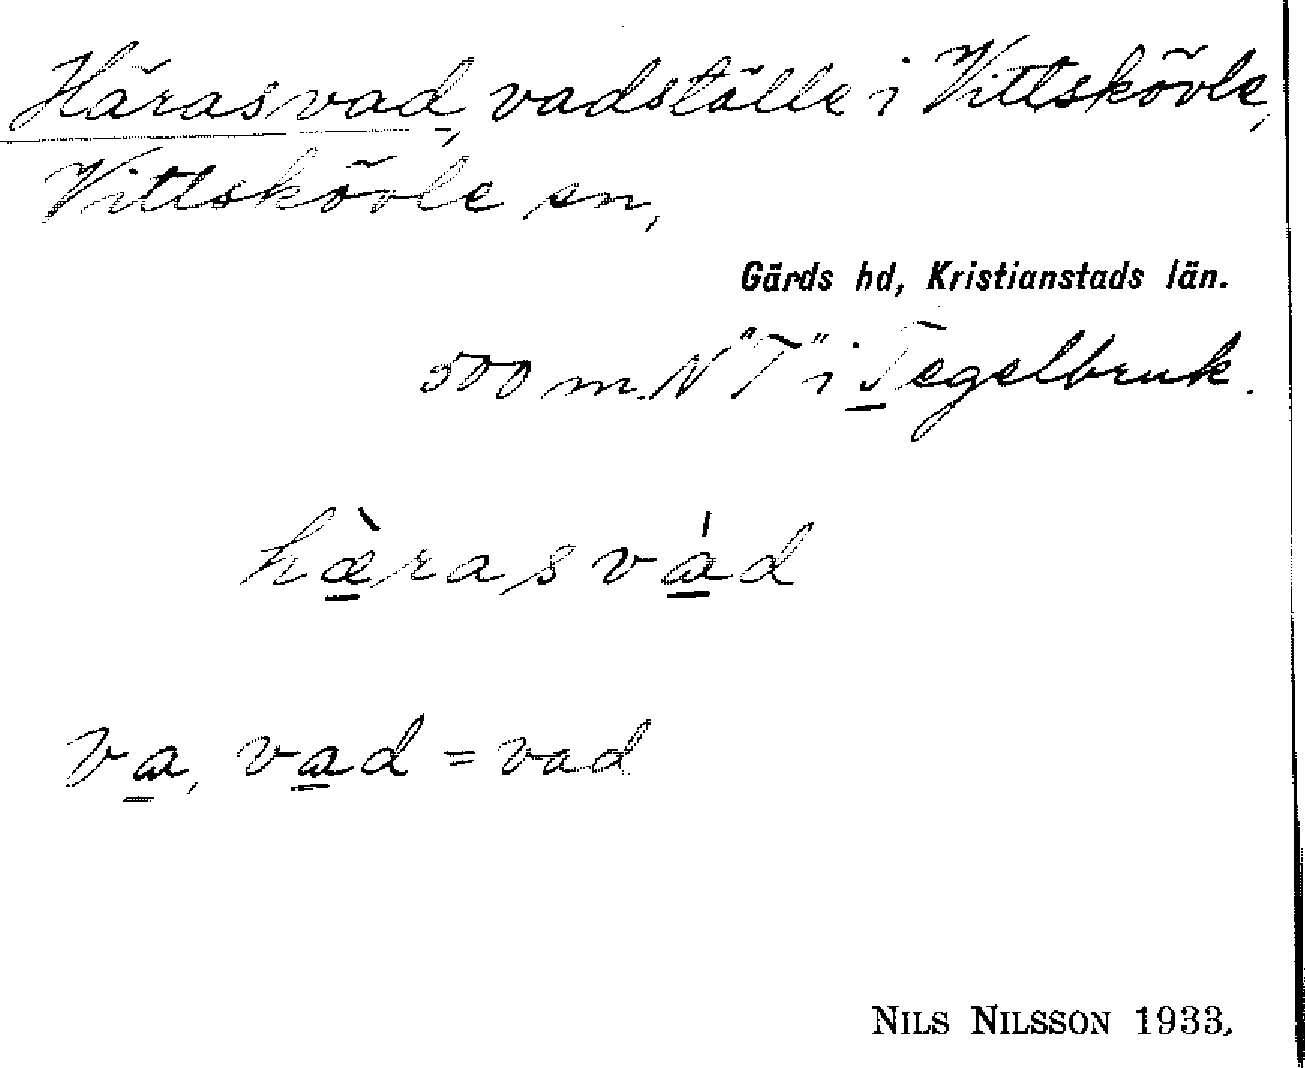 Härasvad, vadställe i Vittskövle,
Vittskövle sn,
Gärds hd, Kristianstads län.
500 m. N "T" i Tegelbruk.
hæ̀rasvád
va, vad = vad
NILS NILSSON 1933.